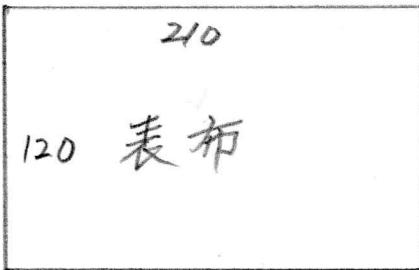 210
120 表布